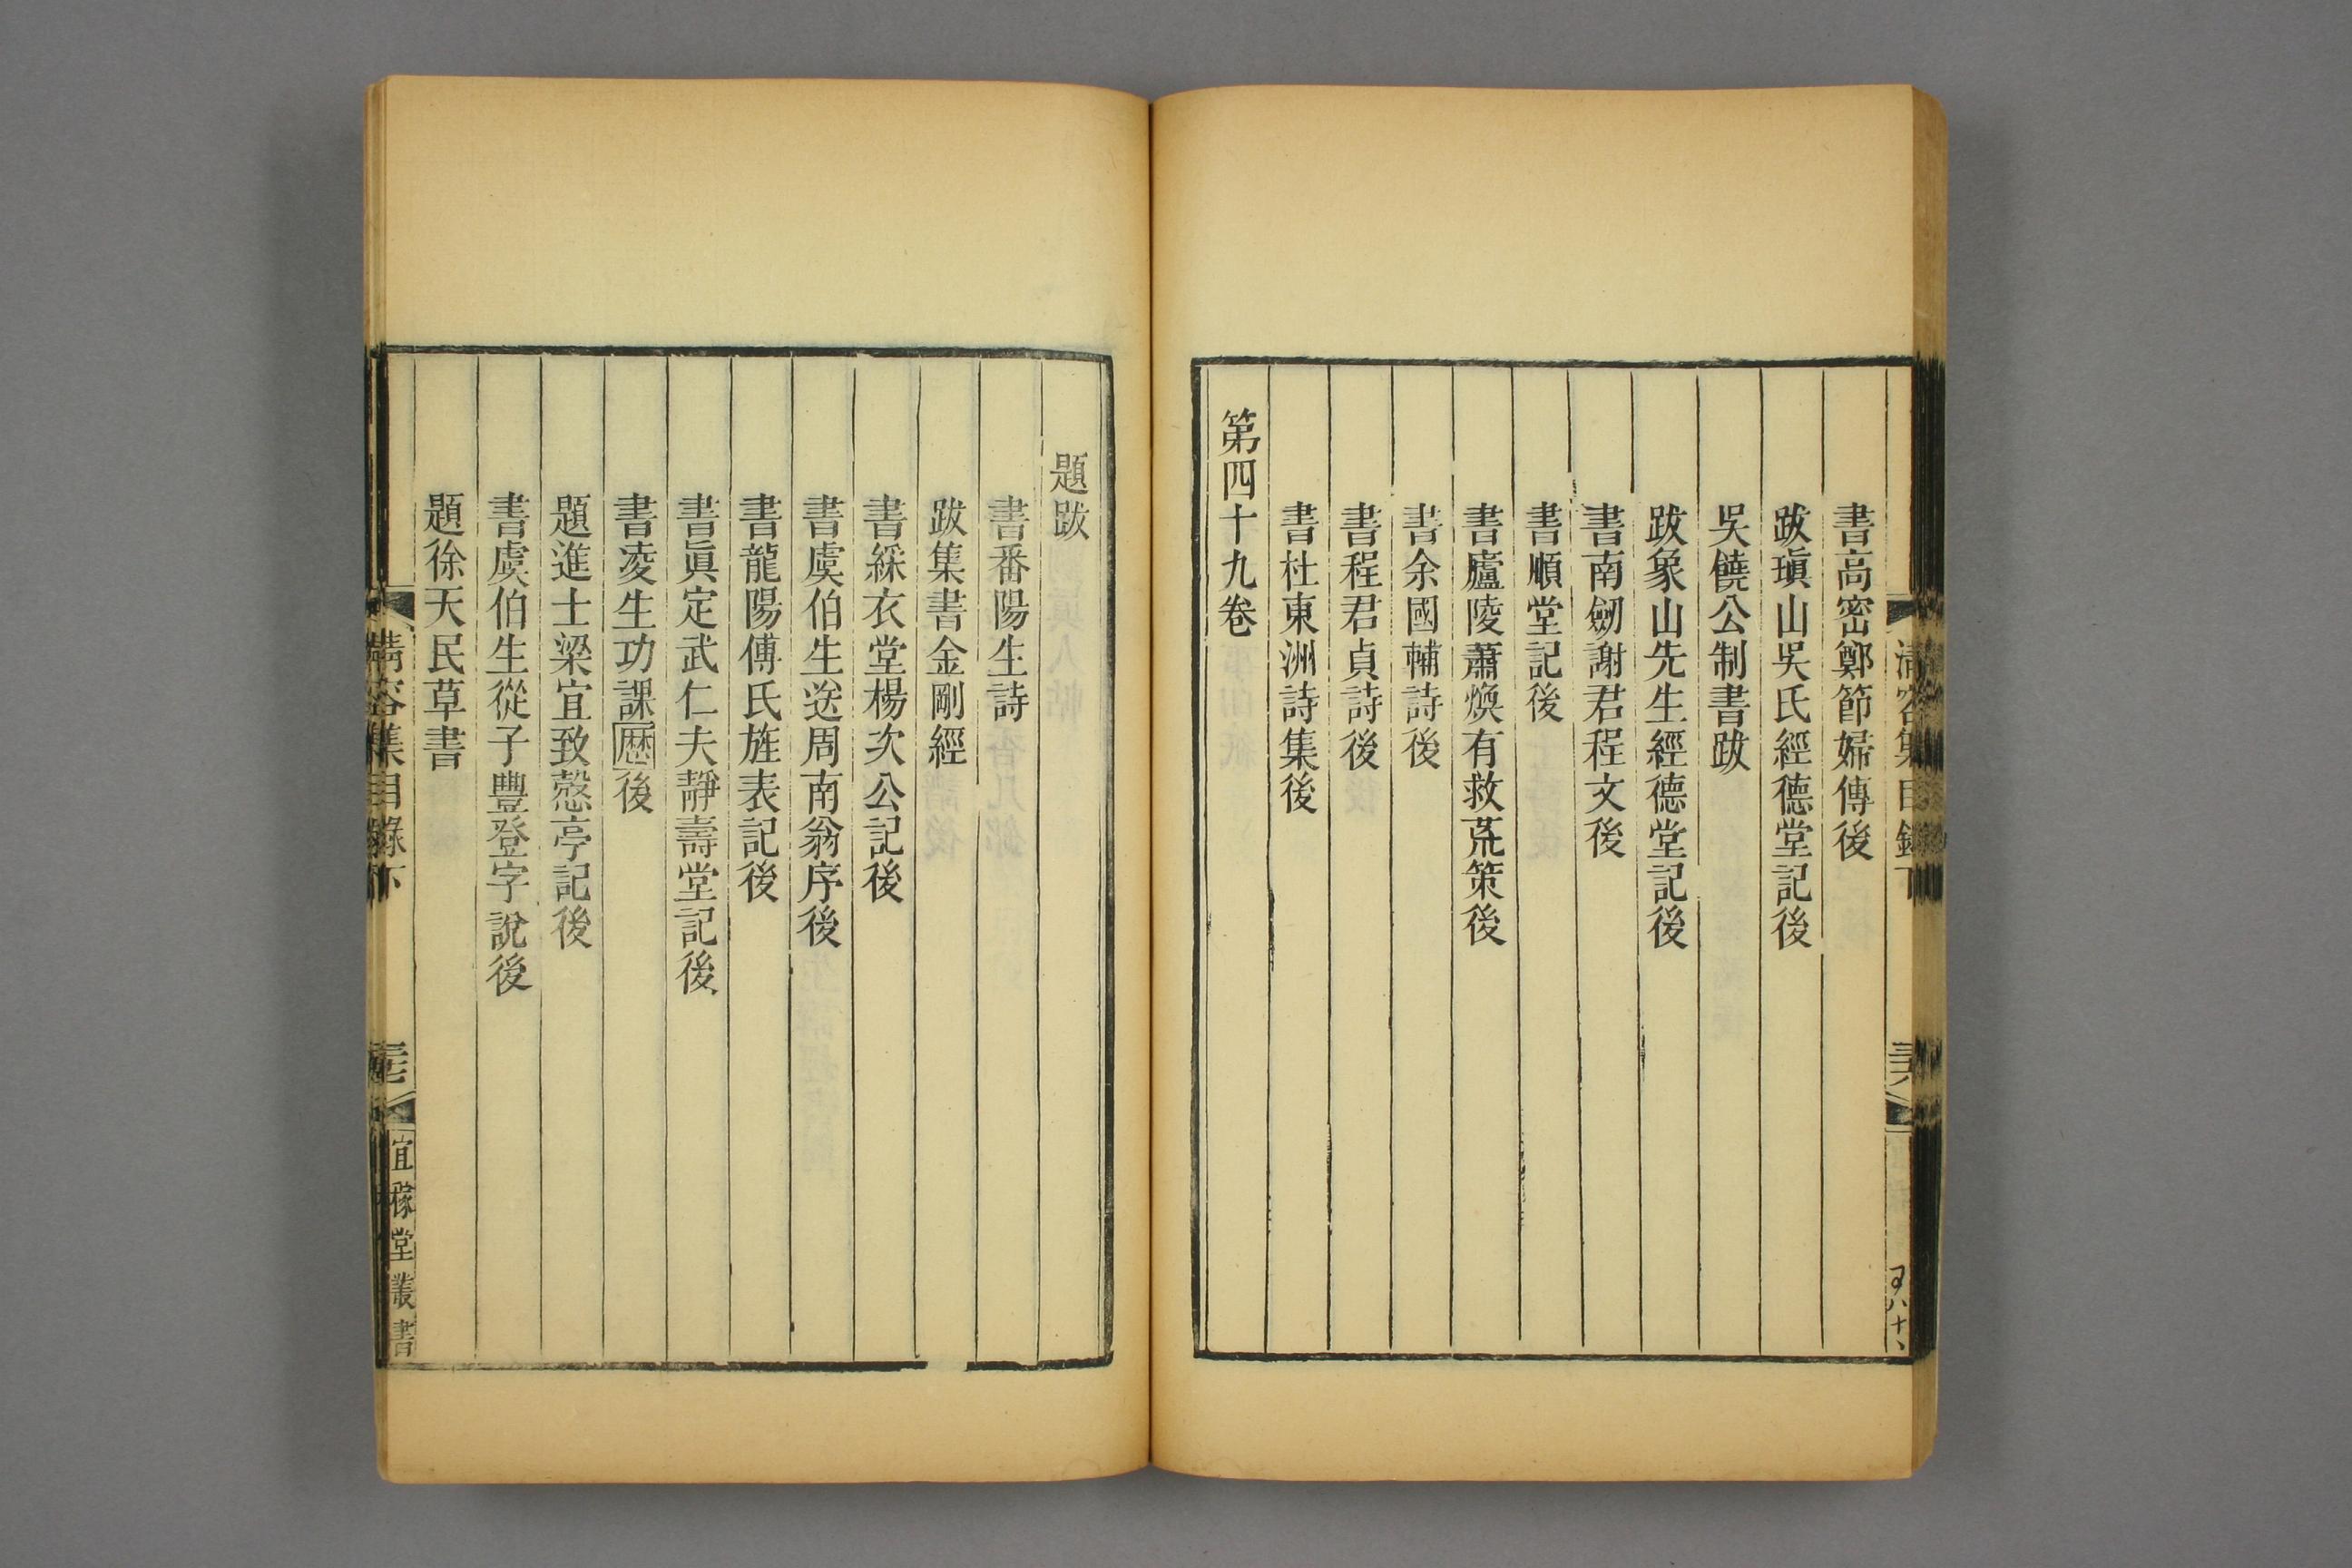 書高密鄭節婦傳後
跋瑱山吳氏經德堂記後
吳饒公制書跋
跋象山先生經德堂記後
書南劒謝君程文後
書順堂記後
書廬陵蕭煥有救荒策後
書余國輔詩後
書程君貞詩後
書杜東洲詩集後
第四十九卷
題跋
書番陽生詩
跋集書金剛經
書綵衣堂楊次公記後
書虞伯生送周南翁序後
書龍陽傅氏旌表記後
書眞定武仁夫靜壽堂記後
書凌生功課歷後
題進士梁宜致愨亭記後
書虞伯生從子豐登字說後
題徐天民草書
清容集目錄下
三十七
宜稼堂叢書